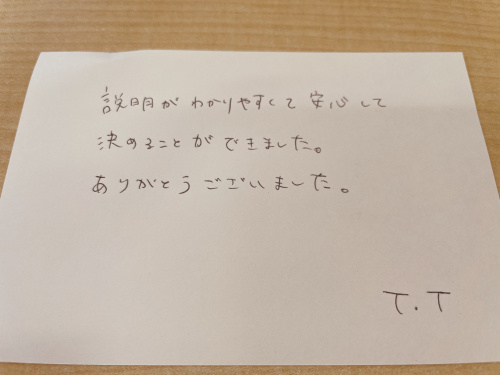 説明がわかりやすくて安心して
決めることができました。
ありがとうございました。
T.T